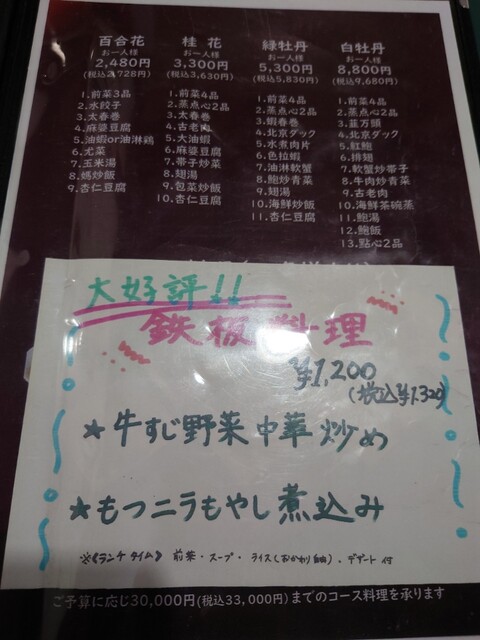 百合花
お一人様
2,480円
(税込2,728円)
1.前菜3品
2.水餃子
3.太春巻
4.麻婆豆腐
5.油蝦or油淋鶏
6.尤菜
7.玉米湯
8.媽炒飯
9.杏仁豆腐
桂花
お一人様
3,300円
(税込3,630円)
1.前菜4品
2.蒸点心2品
3.太春巻
4.古老肉
5.大油蝦
6.麻婆豆腐
7.帯子炒菜
8.翅湯
9.包菜炒飯
10.杏仁豆腐
緑牡丹
お一人様
5,300円
(税込5,830円)
1.前菜4品
2.蒸点心2品
3.蝦春巻
4.北京ダック
5.水煮肉片
6.色拉蝦
7.油淋軟蟹
8.鮑炒青菜
9.翅湯
10.海鮮炒飯
11.杏仁豆腐
白牡丹
お一人様
8,800円
(税込9,680円)
1.前菜4品
2.蒸点心2品
3.韮万頭
4.北京ダック
5.紅鮑
6.排翅
7.軟蟹炒帯子
8.牛肉炒青菜
9.古老肉
10.海鮮茶碗蒸
11.鮑湯
12.鮑飯
13.點心2品
大好評!!
鉄板料理
¥1,200
(税込¥1,320)
★牛すじ野菜中華炒め
★もつニラもやし煮込み
※《ランチタイム》 前菜・スープ・ライス(おかわり自由)・デザート付
ご予算に応じ30,000円(税込33,000円)までのコース料理を承ります